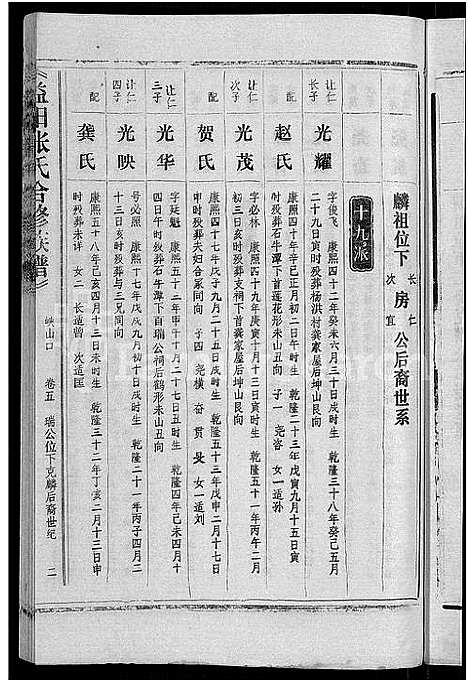 麟祖位下 长 仁 房 次 宜 公后裔世系
十九派
让仁 长子 光耀 字俊飞 康熙四十二年癸未六月三十日戌时生 乾隆三十八年癸巳五月
二十九日寅时殁葬杨洪村龚家屋后坤山艮向
配 赵氏 康熙四十年辛巳正月初二日午时生 乾隆二十三年戊寅九月十五日寅
时殁葬石牛潭下首莲花形未山丑向 子一 尧咨 女一 适孙
让仁 次子 光茂 字必林 康熙四十九年庚寅十月十三日寅时生 乾隆五十一年丙午二月
初三日亥时殁葬支祠下首龚家屋后坤山艮向
配 贺氏 康熙四十七年戊子九月二十日戌时生 乾隆五十三年戊申二月十七日
申时殁葬夫妇合冢同向 子四 尧横 奋 贯 女一适刘
让仁 三子 光华 字廷魁 康熙五十二年甲午十月二十七日丑时生 乾隆四年己未四月十
四日午时殁葬石牛潭下首瑞公祠后鹤形未山丑向
让仁 四子 光映 号必照 康熙十七年戊戌九月初十日戌时生 乾隆二十一年丙子四月二
十三日亥时殁葬与三兄同向
配 龚氏 康熙五十八年己亥三月十三日未时生 乾隆三十二年丁亥二月十三日申
时殁葬未详 女二 长适曾 次适匡
益阳张氏合修族谱
峡山口 卷五 瑞公位下克麟后裔世纪 二